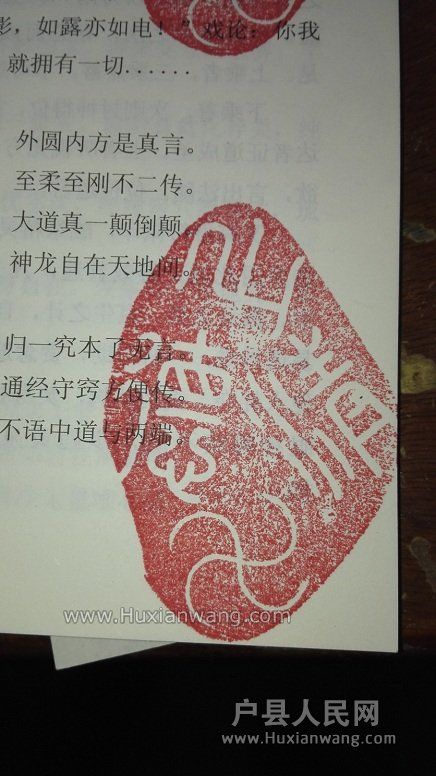 影，如露亦如电！”戏论：你我
就拥有一切......
外圆内方是真言。
至柔至刚不二传。
大道真一颠倒颠。
神龙自在天地间。
归一究本了无言。
通经守窍方便传。
不语中道与两端。
www.Huxianwang.com
户县人民网
www.Huxianwang.com